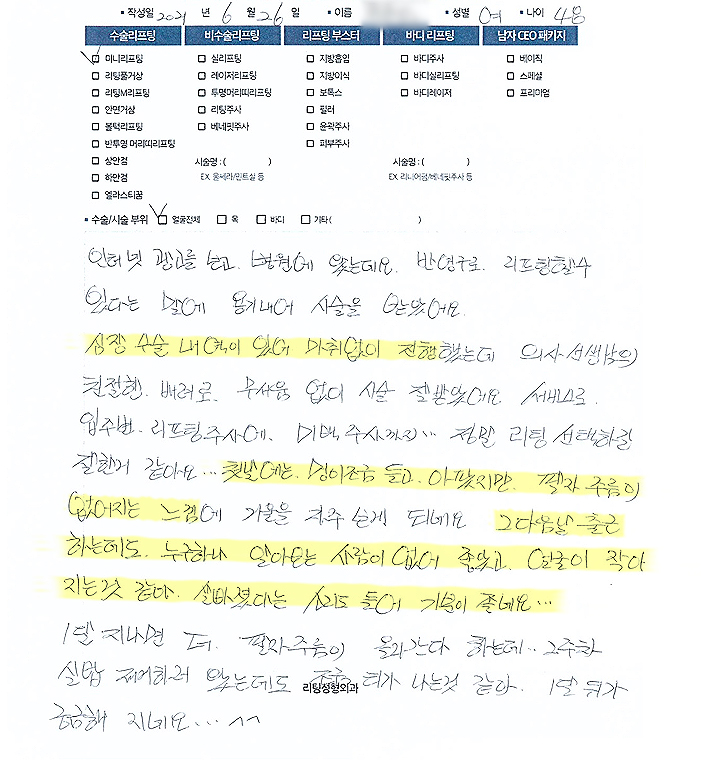 • 작성일 2021 년 6 월 26 일 • 이름 • 성별 여 • 나이 48
수술리프팅 비수술리프팅 리프팅 부스터 바디 리프팅 남자 CEO 패키지
미니리프팅 실리프팅 지방흡입 바디주사 베이직
리팅풀거상 레이저리프팅 지방이식 바디실리프팅 스페셜
리팅M리프팅 투명머리띠리프팅 보톡스 바디레이저 프리미엄
안면거상 리팅주사 필러
볼턱리프팅 베네핏주사 윤곽주사
반투명 머리띠리프팅 피부주사
상안검 시술명 : ( ) 시술명 : ( )
하안검 EX. 울쎄라/민트실 등 EX. 리니어펌/베네핏주사 등
엘라스티꿈
• 수술/시술 부위 얼굴전체 목 바디 기타 ( )
인터넷 광고를 보고. 병원에 왔는데요. 반영구로. 리프팅할수
있다는 말에 용기내어 시술을 받았어요.
심장 수술 내역이 있어 마취없이 진행했는데 의사선생님의
친절한. 배려로. 무서움 없이 시술 잘받았어요 서비스로.
입주변. 리프팅주사에. 미백주사까지... 정말 리팅 선택하길
잘한거 같아요... 첫날에는. 멍이조금 들고. 아팠지만. 팔자 주름이
없어지는 느낌에 거울을 자주 보게 되네요 그다음날 출근
하는데도. 누구하나 알아보는 사람이 없어 좋았고. 얼굴이 작아
지는것 같다. 살빠졌다는 소리도 들어 기분이 좋네요...
1달 지나면 더. 팔자주름이 올라간다 하는데.. 2주차
실밥 제거하러 왔는데도 조금 티가 나는것 같아. 1달 뒤가
궁금해 지네요... ^^
리팅성형외과